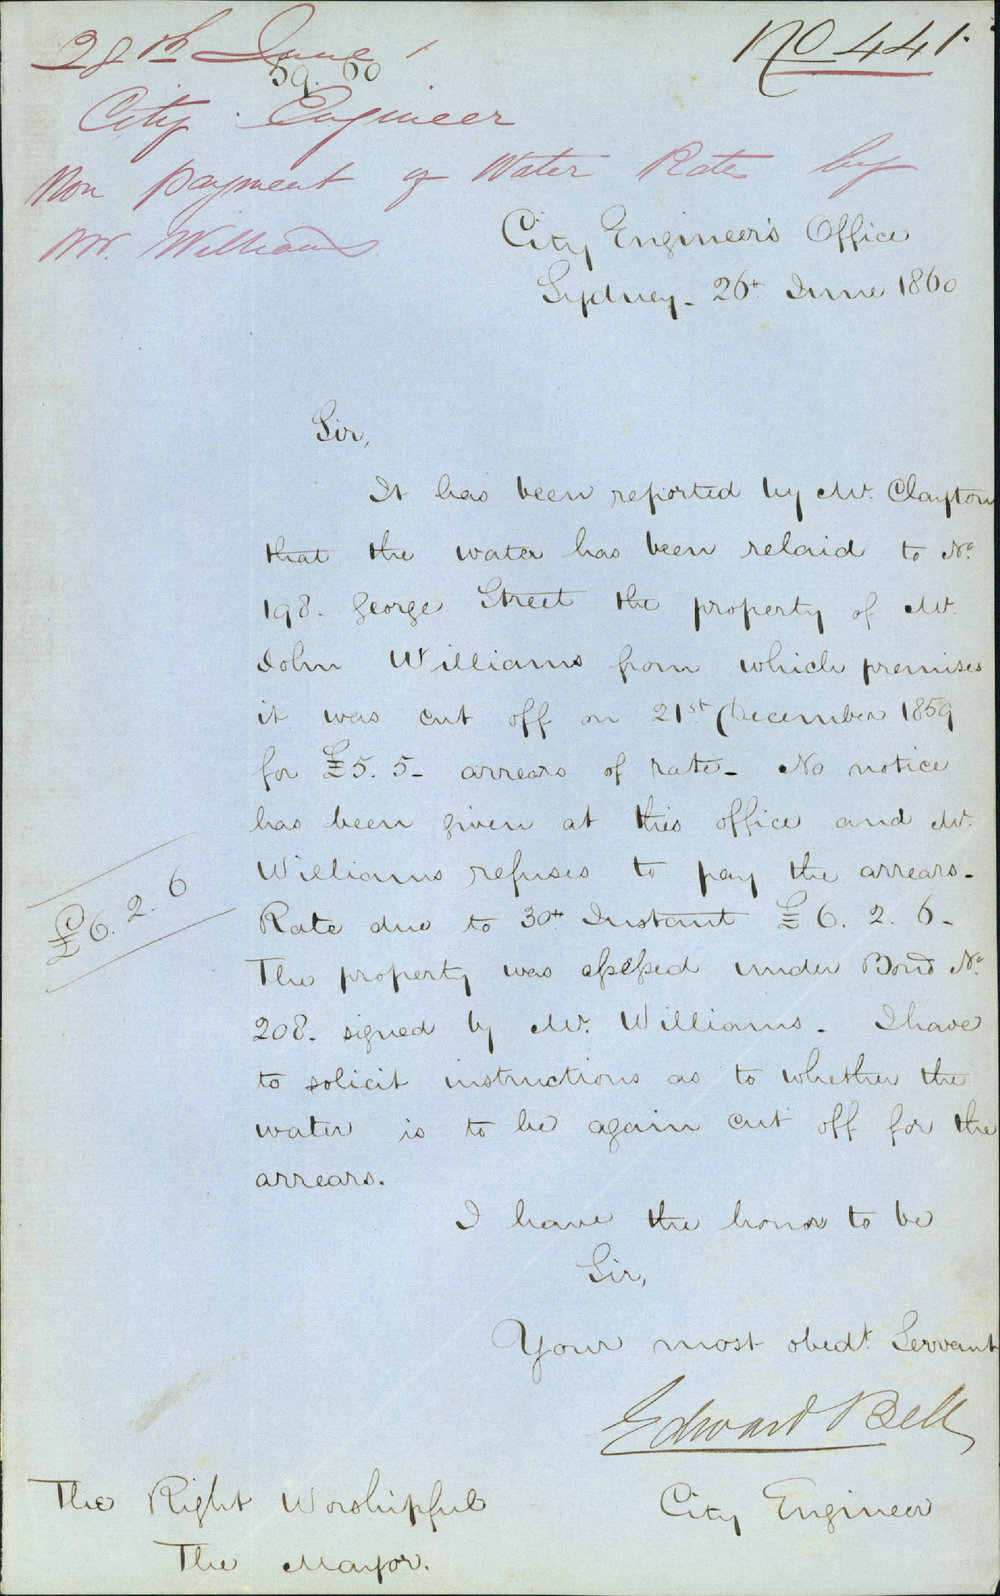 28th June
No 441.
59. 60
City Engineer
Non payment of Water Rates by
Mr. Williams
City Engineer's Office
Sydney - 26th June 1860
Sir,
It has been reported by Mr. Clayton
that the water has been relaid to No.
198. George Street the property of Mr.
John Williams from which premises
it was cut off on 21st December 1859
for £5. 5 - arrears of rate - No notice
has been given at this office and Mr.
Williams refuses to pay the arrears -
Rate due to 30th Instant £6. 2. 6 -
The property was assessed under Bond No.
208. signed by Mr. Williams. I have
to solicit instructions as to whether the
water is to be again cut off for the
arrears.
£6. 2. 6
I have the honor to be
Sir,
Your most obedt. Servant
Edward Bell
City Engineer
The Right Worshipful
The Mayor.